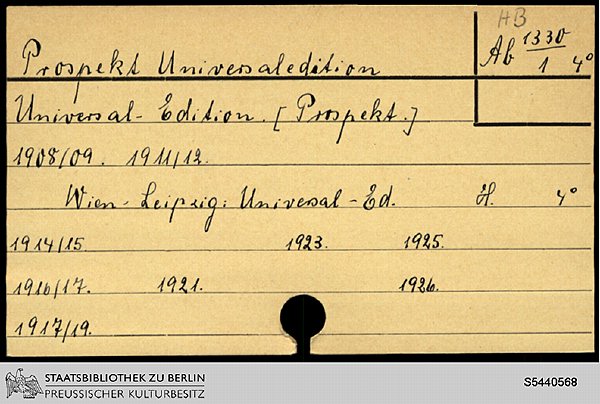 HB
Prospekt Universaledition
Ab 1330/1 4°
Universal-Edition. [Prospekt.]
1908/09. 1911/12.
Wien-Leipzig: Universal-Ed. H. 4°
1914/15. 1923. 1925.
1916/17. 1921. 1926.
1917/19.
STAATSBIBLIOTHEK ZU BERLIN
PREUSSISCHER KULTURBESITZ
S5440568